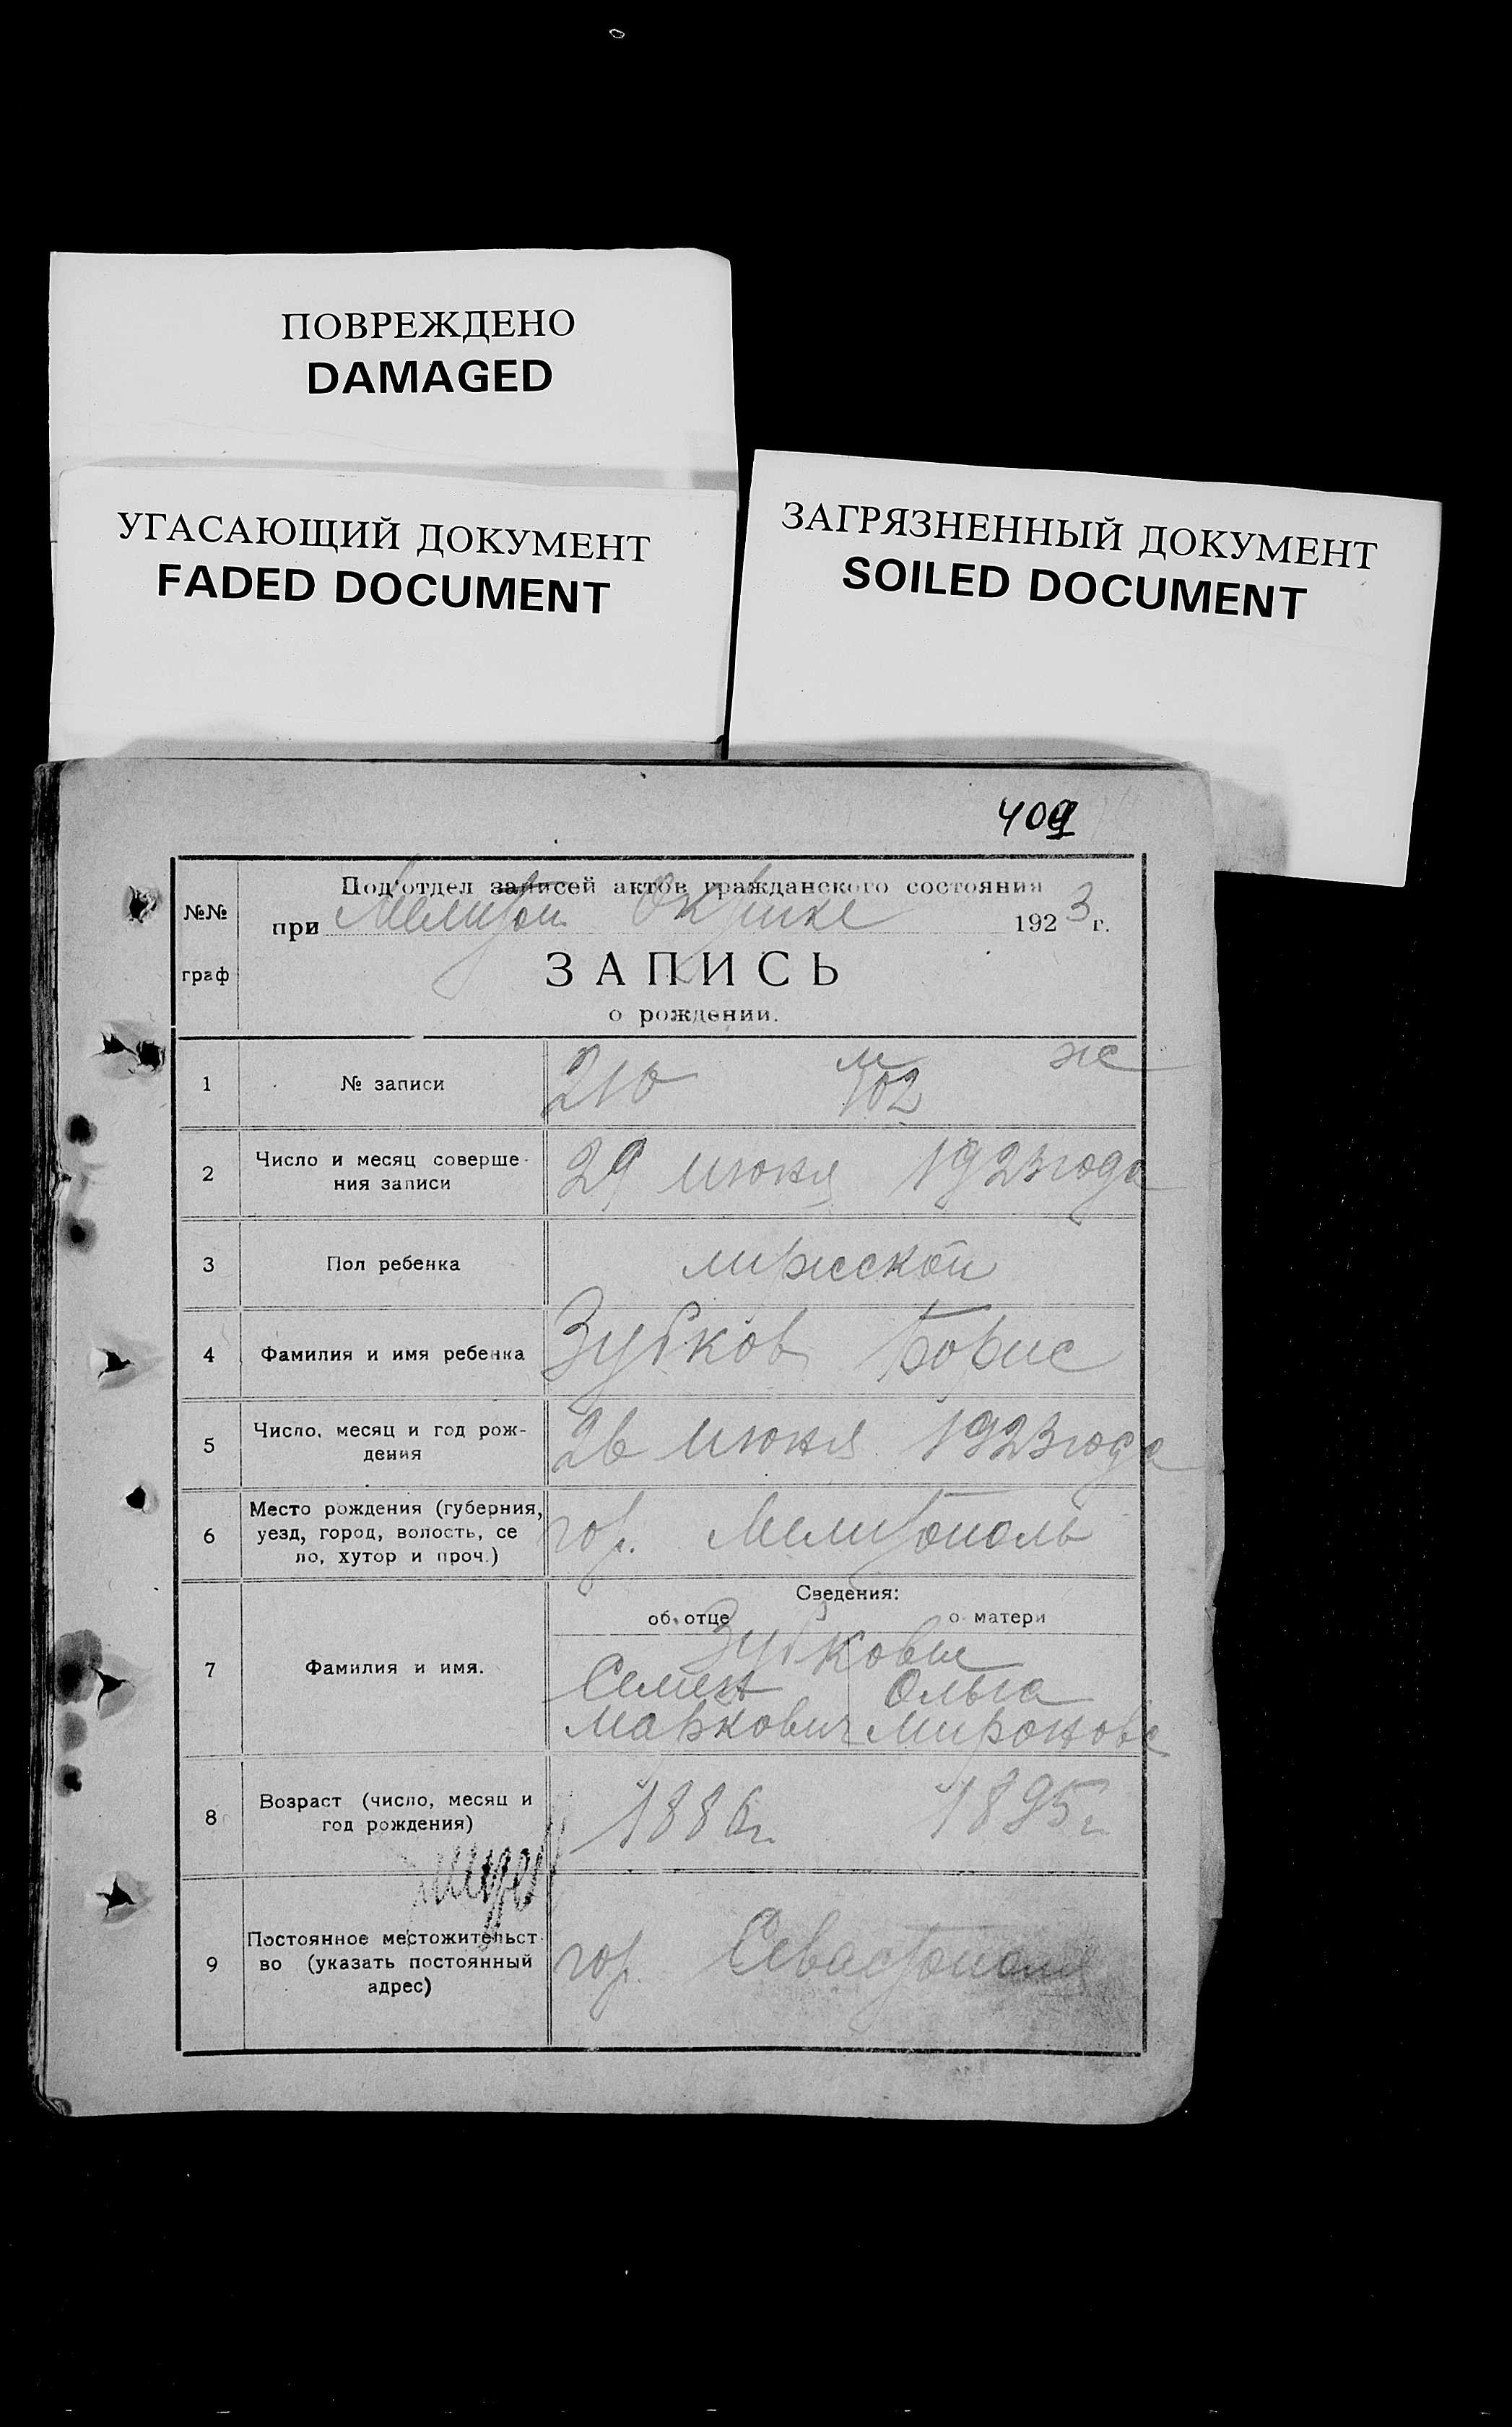 ПОВРЕЖДЕНО
DAMAGED
УГАСАЮЩИЙ ДОКУМЕНТ
FADED DOCUMENT
ЗАГРЯЗНЕННЫЙ ДОКУМЕНТ
SOILED DOCUMENT
409
№№
граф
Под'отдел записей актов гражданского состояния
при Мелитоп. 1923 г.
ЗАПИСЬ
о рождении.
1 № записи 210 м 102 ж
2 Число и месяц соверше- 29 июня 1923 года
ния записи
3 Пол ребенка мужской
4 Фамилия и имя ребенка Зубков Борис
5 Число, месяц и год рож- 26 июня 1923 года
дения
6 Место рождения (губерния, гор. Мелитополь
уезд, город, волость, се
ло, хутор и проч.)
Сведения:
об отце о матери
Зубковы
7 Фамилия и имя. Семен Ольга
Маркович Миронова
8 Возраст (число, месяц и 1886 г. 1895 г.
год рождения)
9 Постоянное местожительст- гор. Севастополь
во (указать постоянный
адрес)